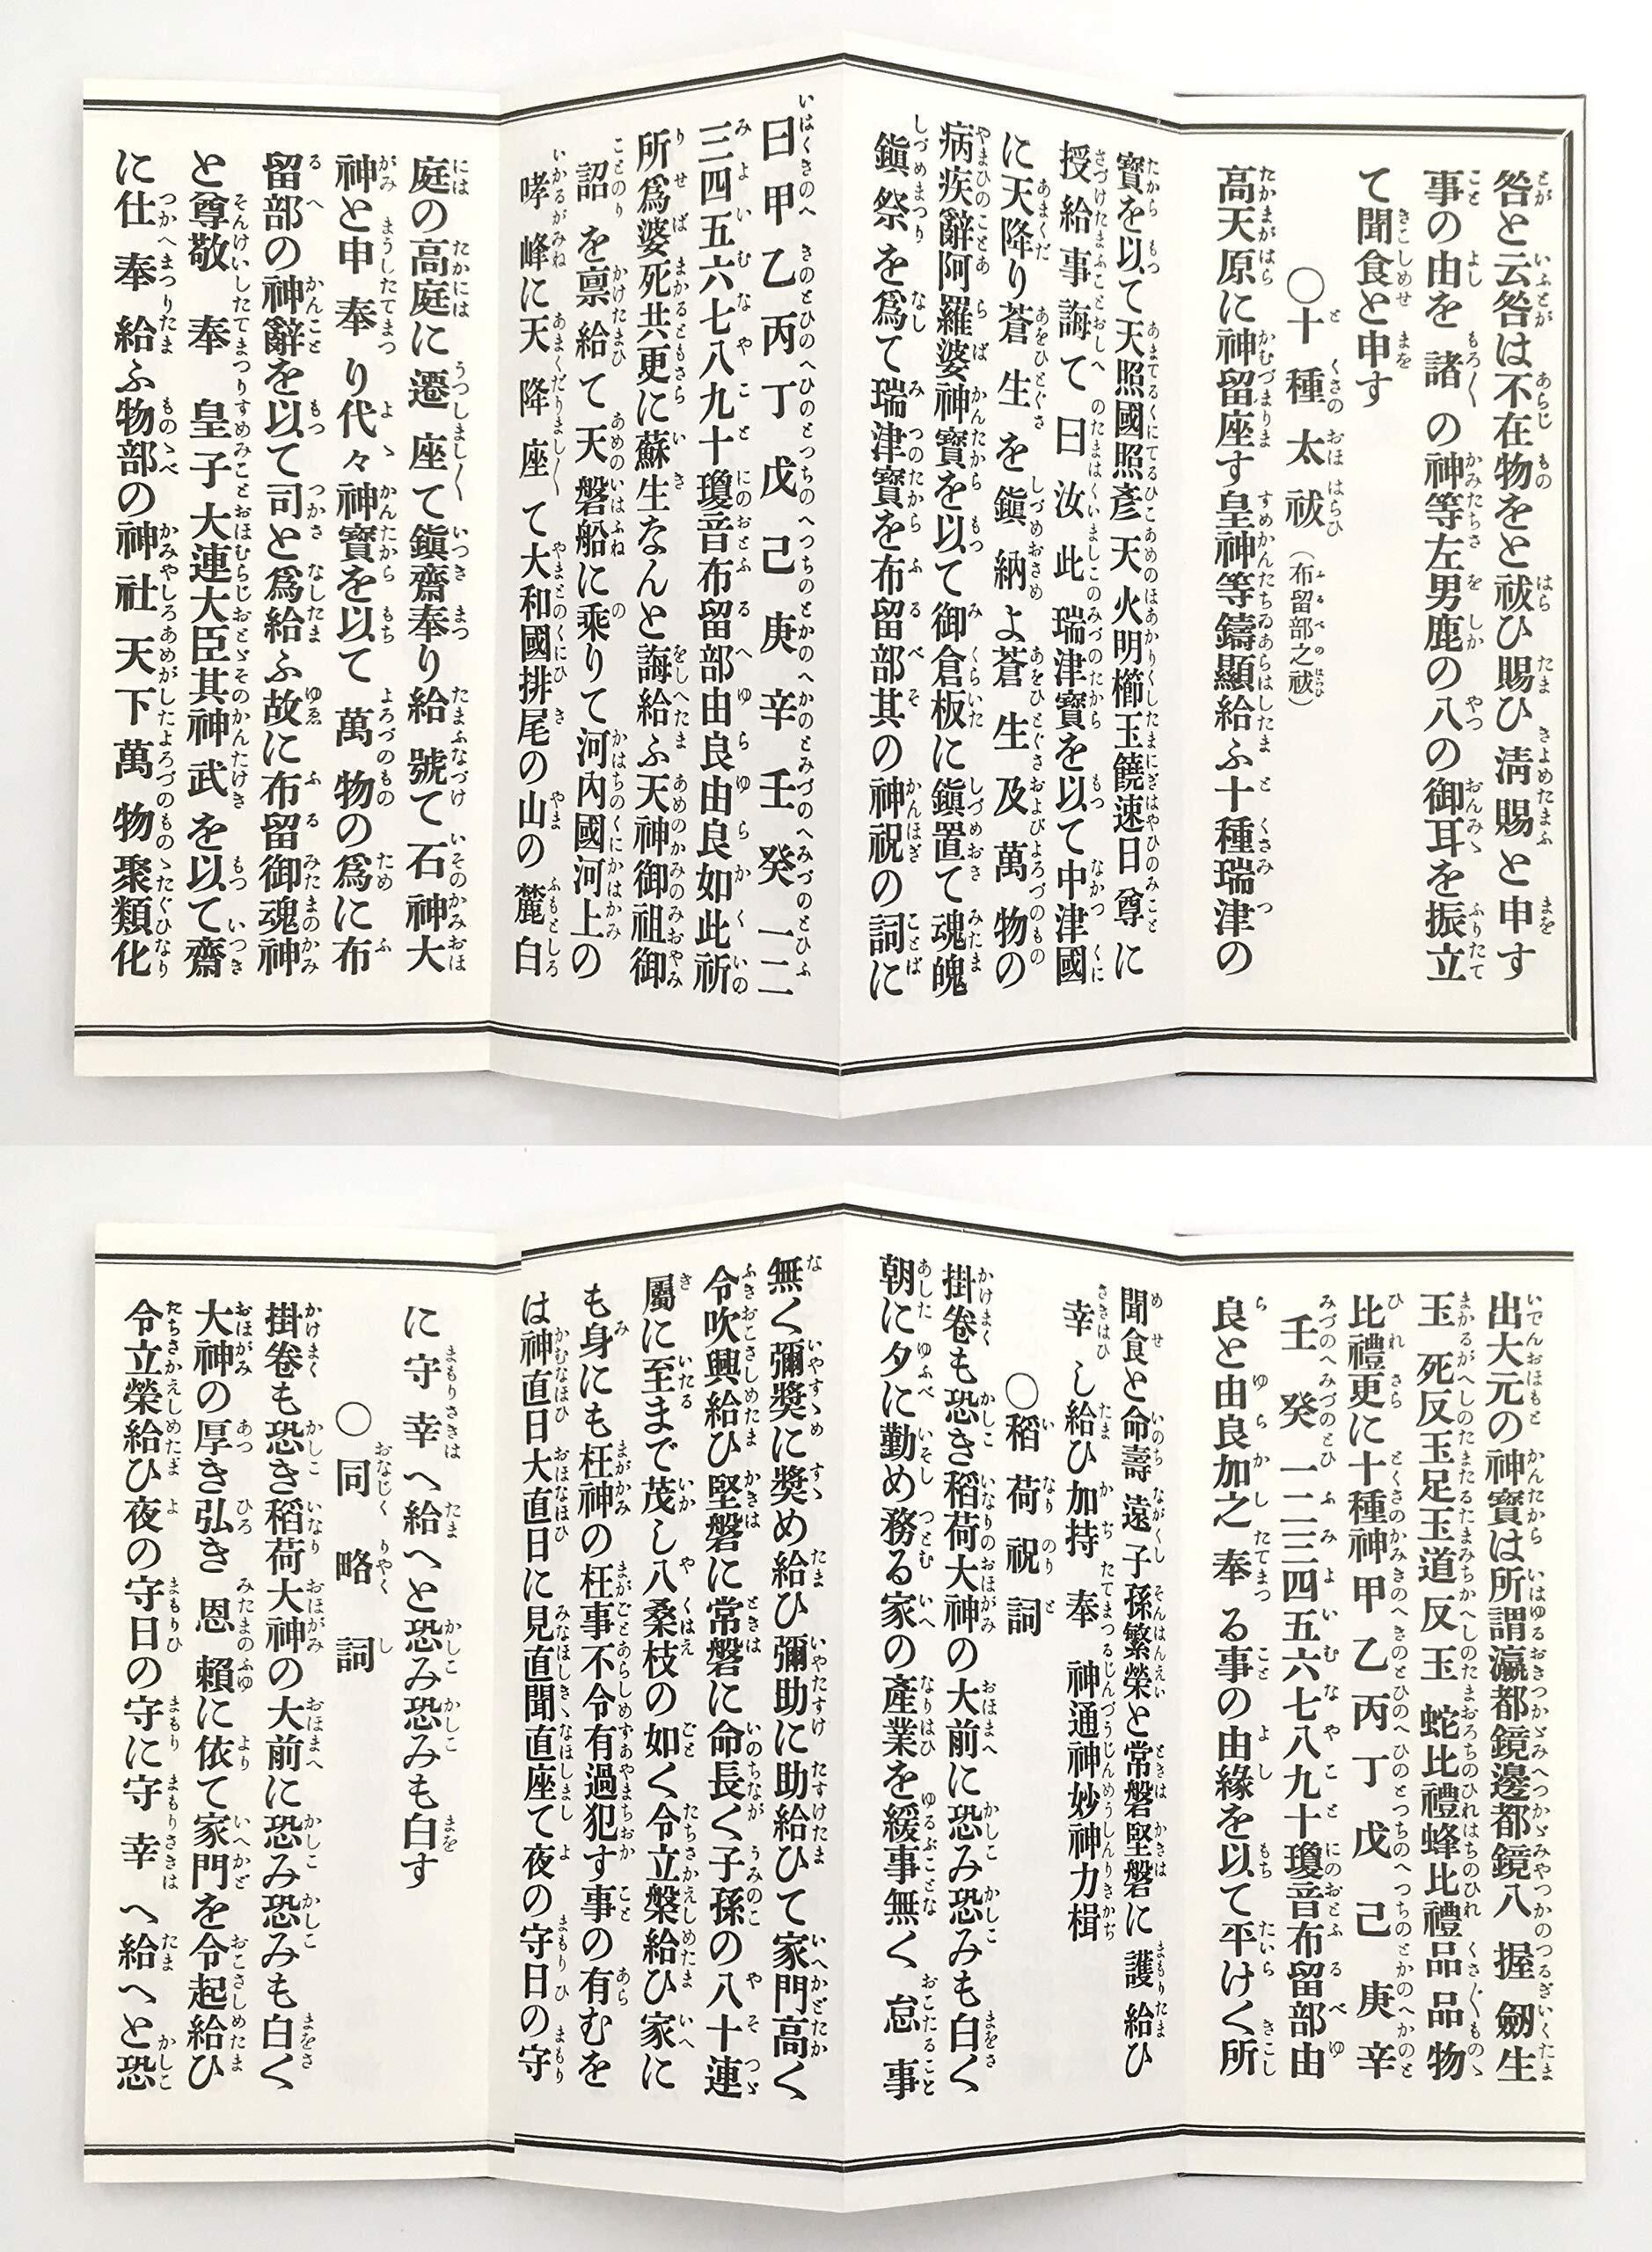 咎と云咎は不在物をと祓ひ賜ひ清賜と申す
事の由を諸の神等左男鹿の八の御耳を振立
て聞食と申す
〇十種太祓（布留部之祓）
高天原に神留座す皇神等鑄顯給ふ十種瑞津の
寶を以て天照國照彥天火明櫛玉饒速日尊に
授給事誨て曰汝此瑞津寶を以て中津國
に天降り蒼生を鎭納よ蒼生及萬物の
病疾辭阿羅婆神寶を以て御倉板に鎭置て魂魄
鎭祭を爲て瑞津寶を布留部其の神祝の詞に
曰甲乙丙丁戊己庚辛壬癸一二
三四五六七八九十瓊音布留部由良由良如此祈
所爲婆死共更に蘇生なんと誨給ふ天神御祖御
詔を禀給て天磐船に乘りて河內國河上の
哮峰に天降座て大和國排尾の山の麓白
庭の高庭に遷座て鎭齋奉り給號て石神大
神と申奉り代々神寶を以て萬物の爲に布
留部の神辭を以て司と爲給ふ故に布留御魂神
と尊敬奉皇子大連大臣其神武を以て齋
に仕奉給ふ物部の神社天下萬物聚類化
出大元の神寶は所謂瀛都鏡邊都鏡八握劒生
玉死反玉足玉道反玉蛇比禮蜂比禮品品物
比禮更に十種神甲乙丙丁戊己庚辛
壬癸一二三四五六七八九十瓊音布留部由
良と由良加之奉る事の由緣を以て平けく所
聞食と命壽遠子孫繁榮と常磐堅磐に護給ひ
幸し給ひ加持奉神通神妙神力楫
〇稻荷祝詞
掛卷も恐き稻荷大神の大前に恐み恐みも白く
朝に夕に勤め務る家の產業を緩事無く怠事
無く彌奬に奬め給ひ彌助に助給ひて家門高く
令吹興給ひ堅磐に常磐に命長く子孫の八十連
屬に至まで茂し八桑枝の如く令立槃給ひ家に
も身にも枉神の枉事不令有過犯す事の有むを
は神直日大直日に見直聞直座て夜の守日の守
に守幸へ給へと恐み恐みも白す
〇同略詞
掛卷も恐き稻荷大神の大前に恐み恐みも白く
大神の厚き弘き恩賴に依て家門を令起給ひ
令立榮給ひ夜の守日の守に守幸へ給へと恐